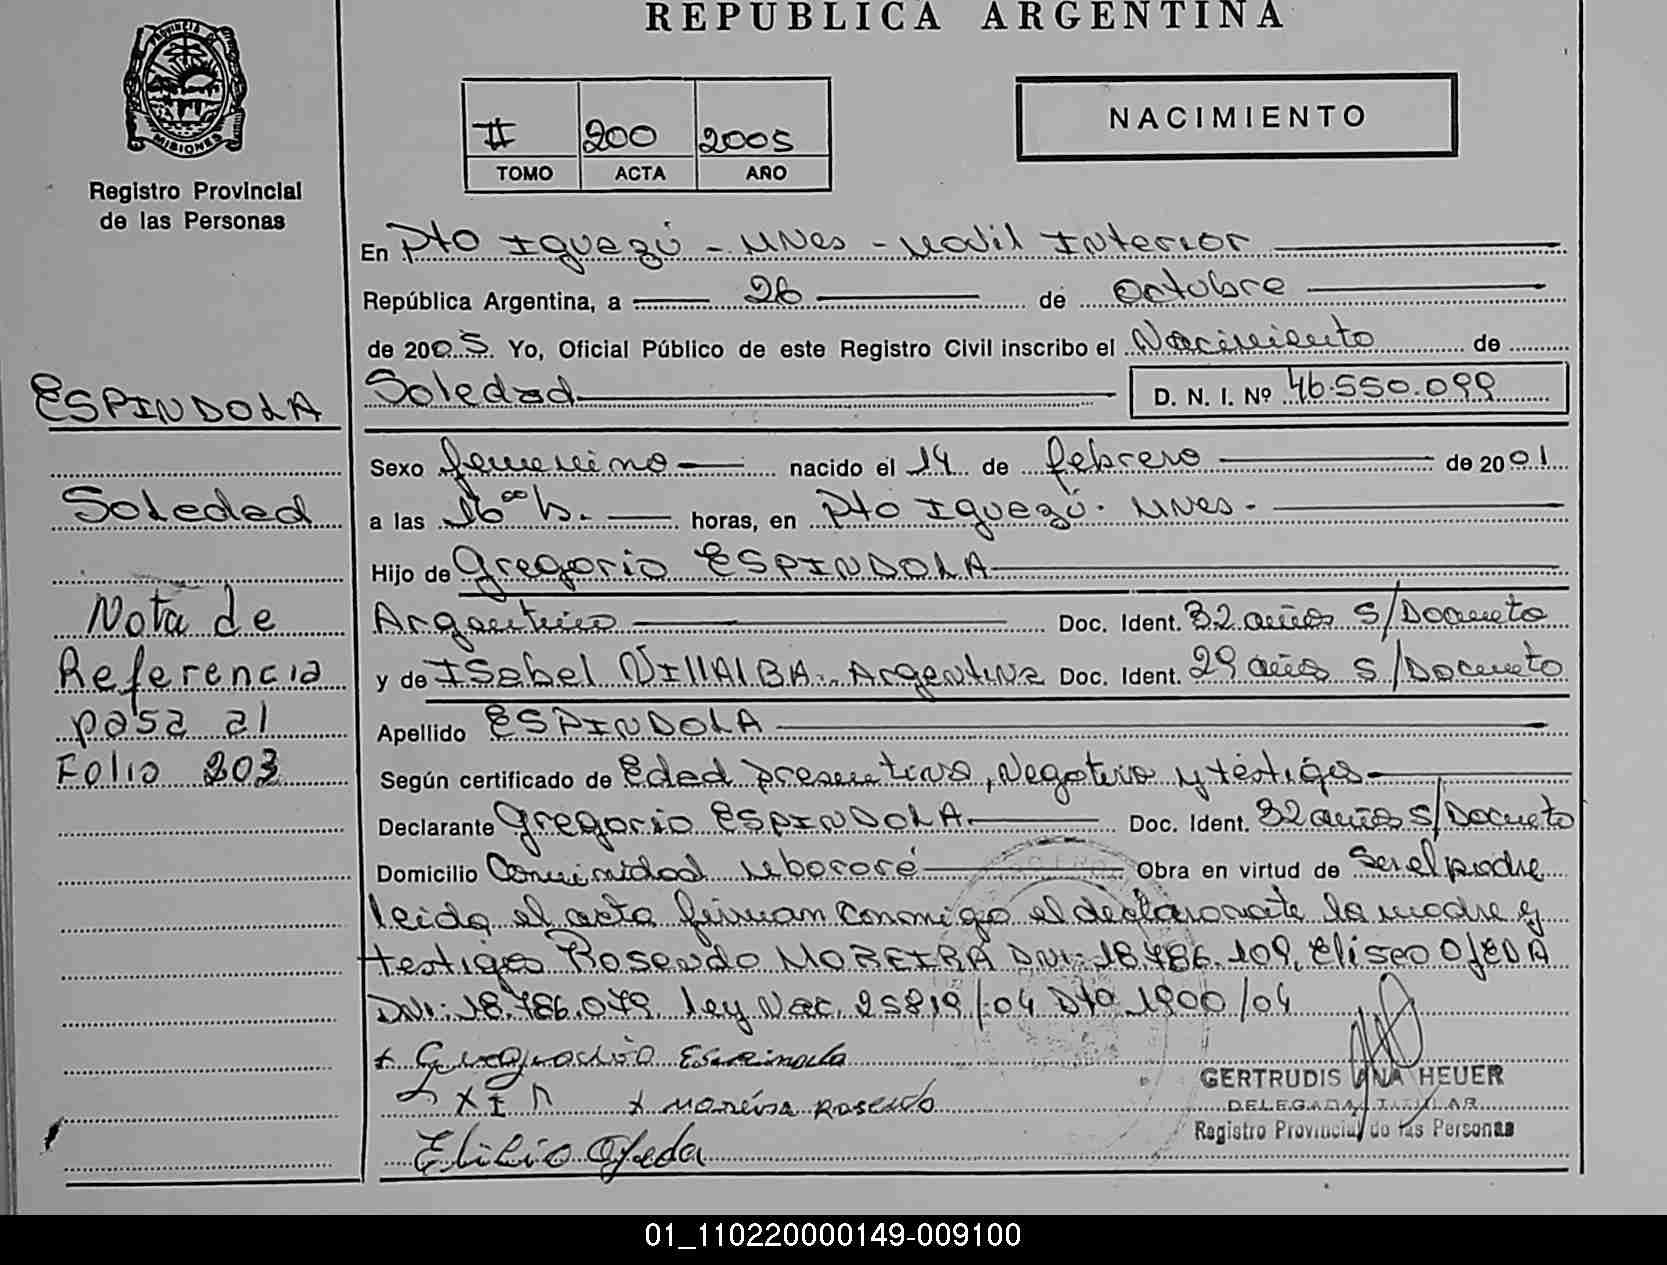 REPUBLICA ARGENTINA
PROVINCIA DE
MISIONES
Registro Provincial
de las Personas
II 200 2005
TOMO ACTA AÑO
NACIMIENTO
En Pto Iguazú - Mnes - Movil Interior
República Argentina, a 26 de octubre
de 2005. Yo, Oficial Público de este Registro Civil inscribo el Nacimiento de
Soledad D. N. I. Nº 46.550.099
ESPINDOLA
Soledad
Nota de
Referencia
pasa al
Folio 203
Sexo femenino nacido el 14 de febrero de 2001
a las 16 ºº h. horas, en Pto Iguazú. Mnes.
Hijo de Gregorio ESPINDOLA
Argentino Doc. Ident. 32 años S/Docueto
y de ISabel VIllAlBA. Argentina Doc. Ident. 29 años S/Docueto
Apellido ESPINDOLA
Según certificado de Edad presuntiva, Negativo y testigos
Declarante Gregorio ESPINDOLA Doc. Ident. 32 años S/Docueto
Domicilio Comunidad Mbororé Obra en virtud de Ser el padre
leida el acta firman conmigo el declarante la madre y
testigos Rosendo MOREIRA DNI: 18.786.109, Eliseo OjEDA
DNI: 18.786.079 ley Nac. 25819/04 Dto 1900/04
+ Espindola
x Moreira Rosendo
Ojeda
GERTRUDIS ANA HEUER
DELEGADA TITULAR
Registro Provincial de las Personas
01_110220000149-009100